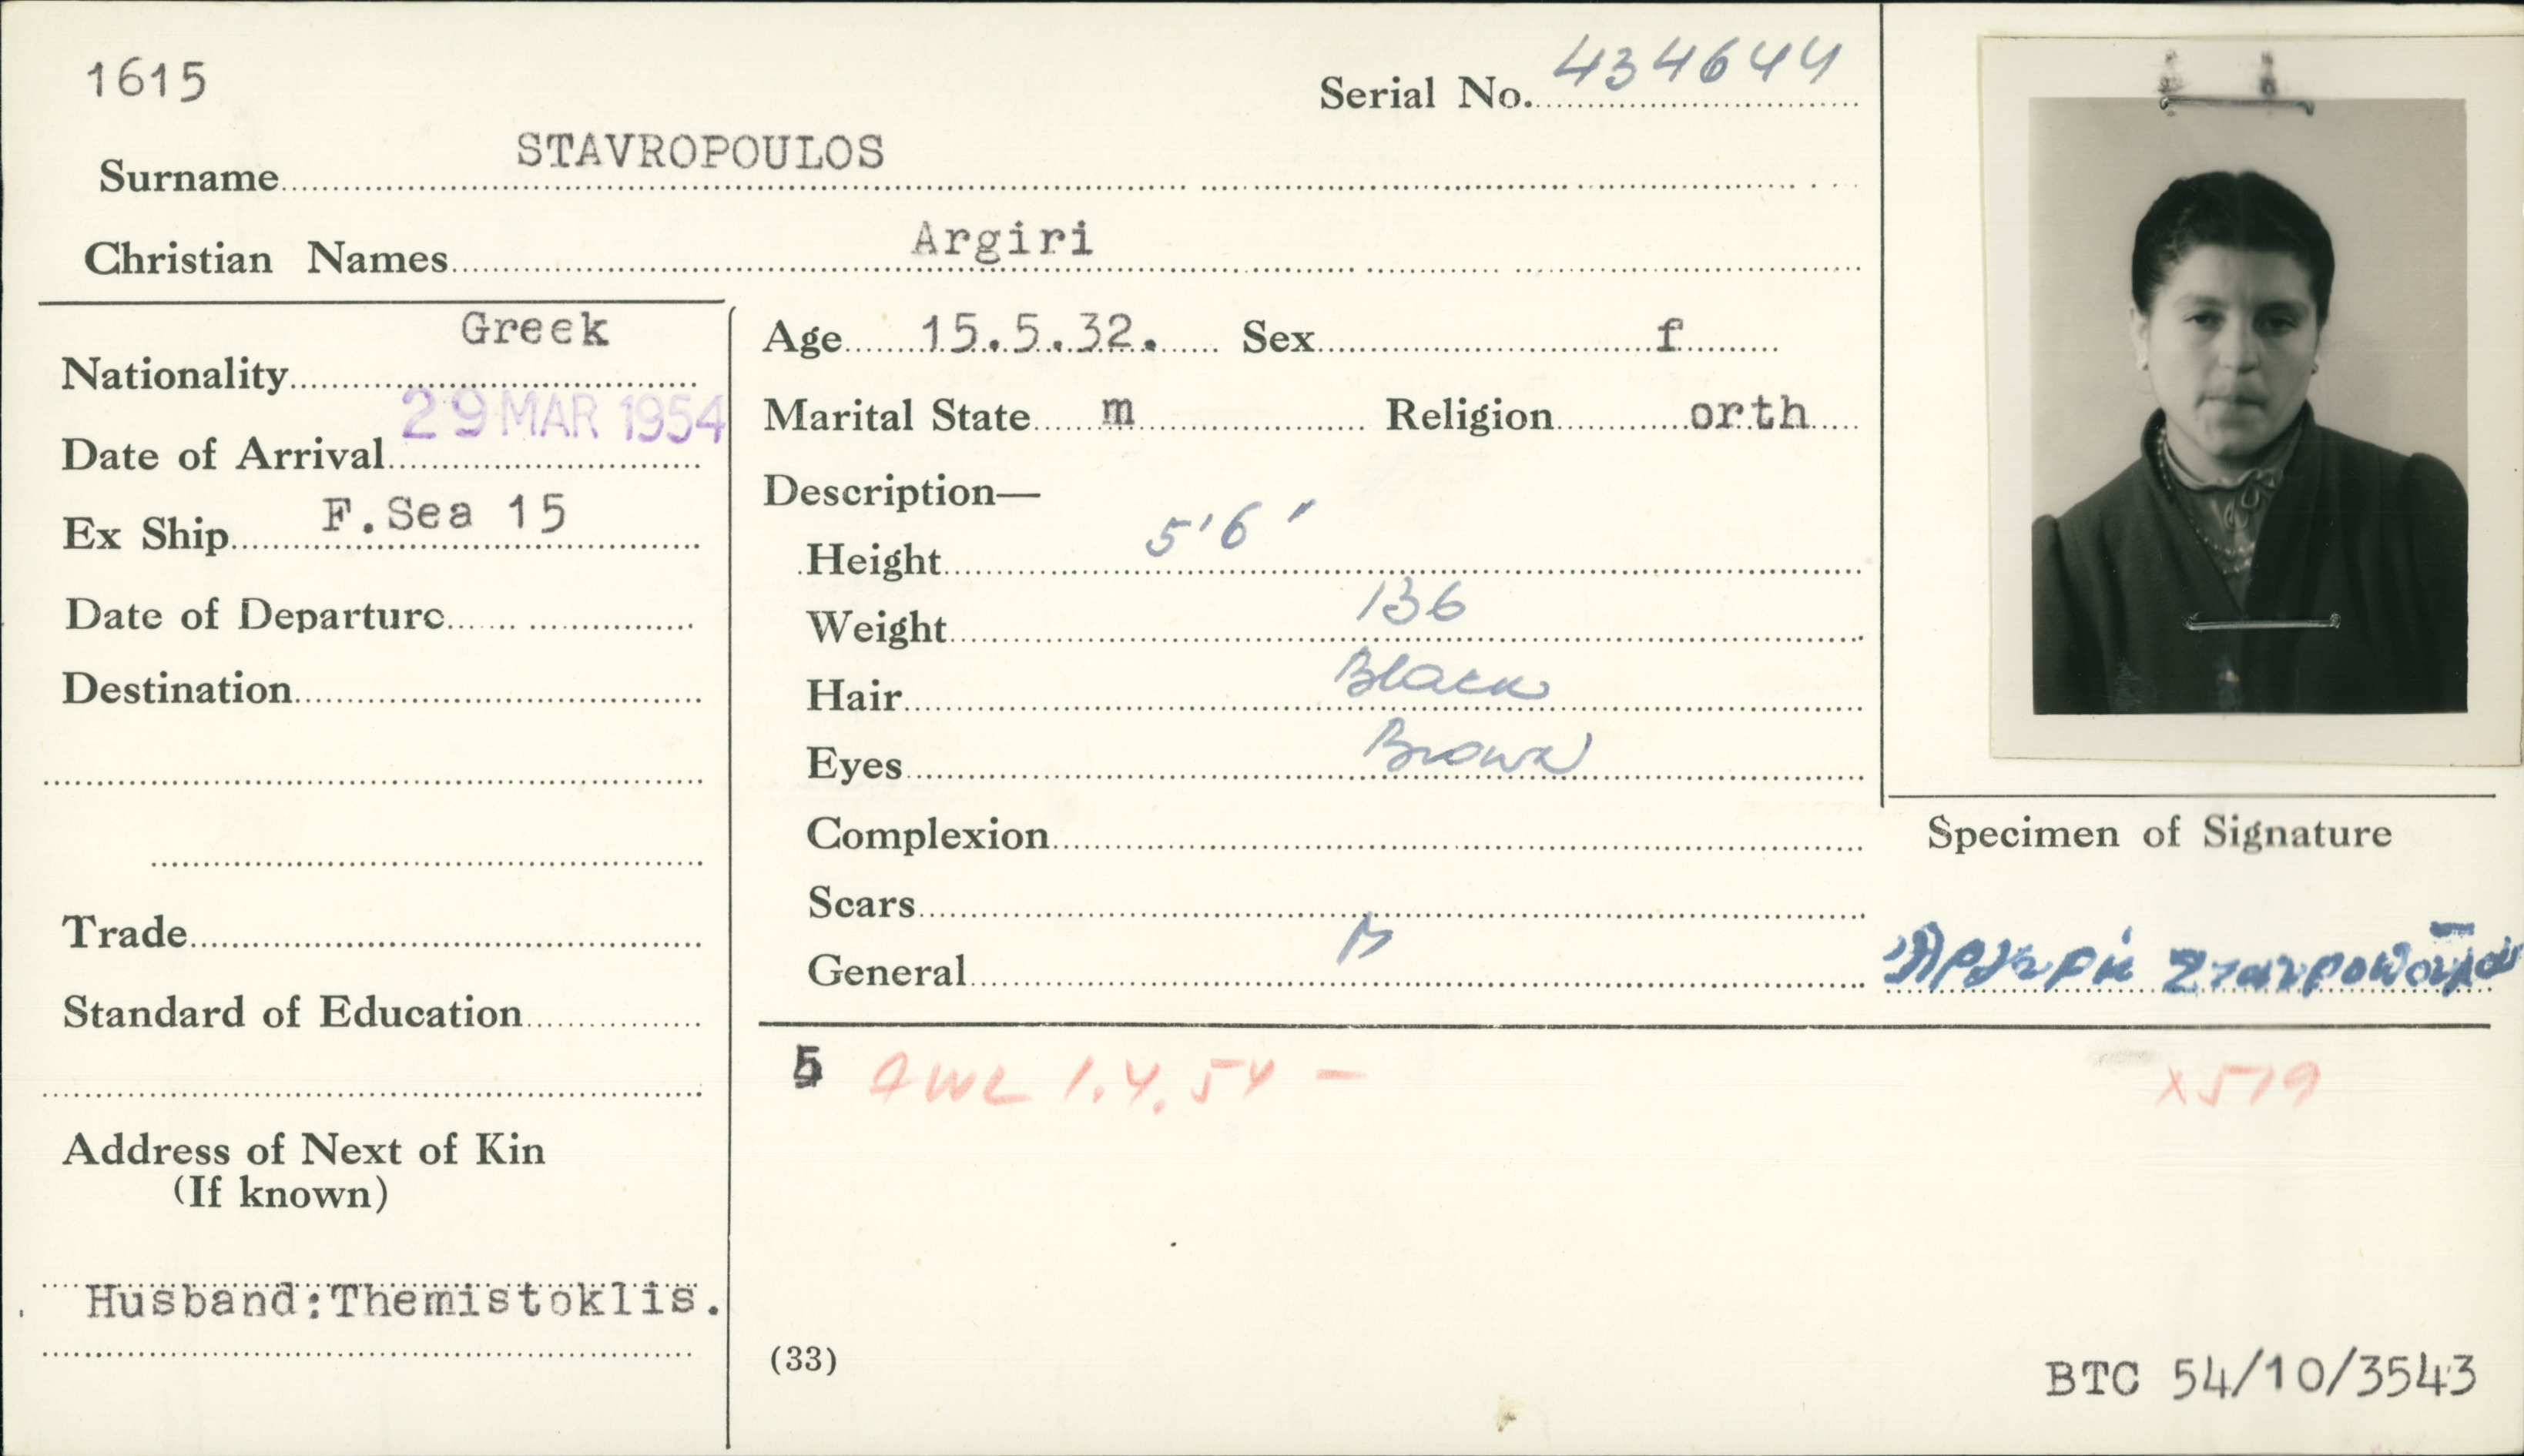 1615
Serial No. 434644
Surname STAVROPOULOS
Christian Names Argiri
Nationality Greek
Date of Arrival 29 MAR 1954
Ex Ship F.Sea 15
Date of Departure
Destination
Trade
Standard of Education
Address of Next of Kin
(If known)
Husband:Themistoklis.
Age 15.5.32. Sex f
Marital State m Religion orth
Description—
Height 5'6'
Weight 136
Hair Black
Eyes Brown
Complexion
Scars
General
Specimen of Signature
5 AWL 1.4.54 – X579
(33)
BTC 54/10/3543